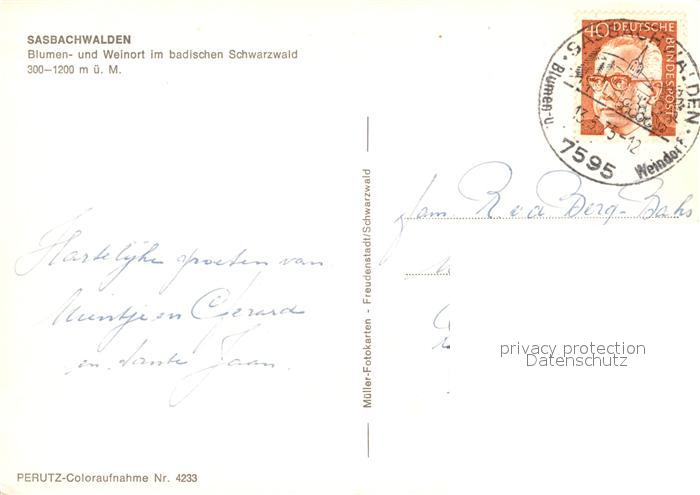 SASBACHWALDEN
Blumen- und Weinort im badischen Schwarzwald
300—1200 m ü. M.
40 DEUTSCHE BUNDESPOST
SASBACHWALDEN
Blumen-u. Weindorf
13.5.75-12
7595
Fam. R v d Berg-Baks
Hartelijke groeten van
Meintje en Gerard
en tante Jaan.
Müller-Fotokarten - Freudenstadt/Schwarzwald
privacy protection
Datenschutz
PERUTZ-Coloraufnahme Nr. 4233